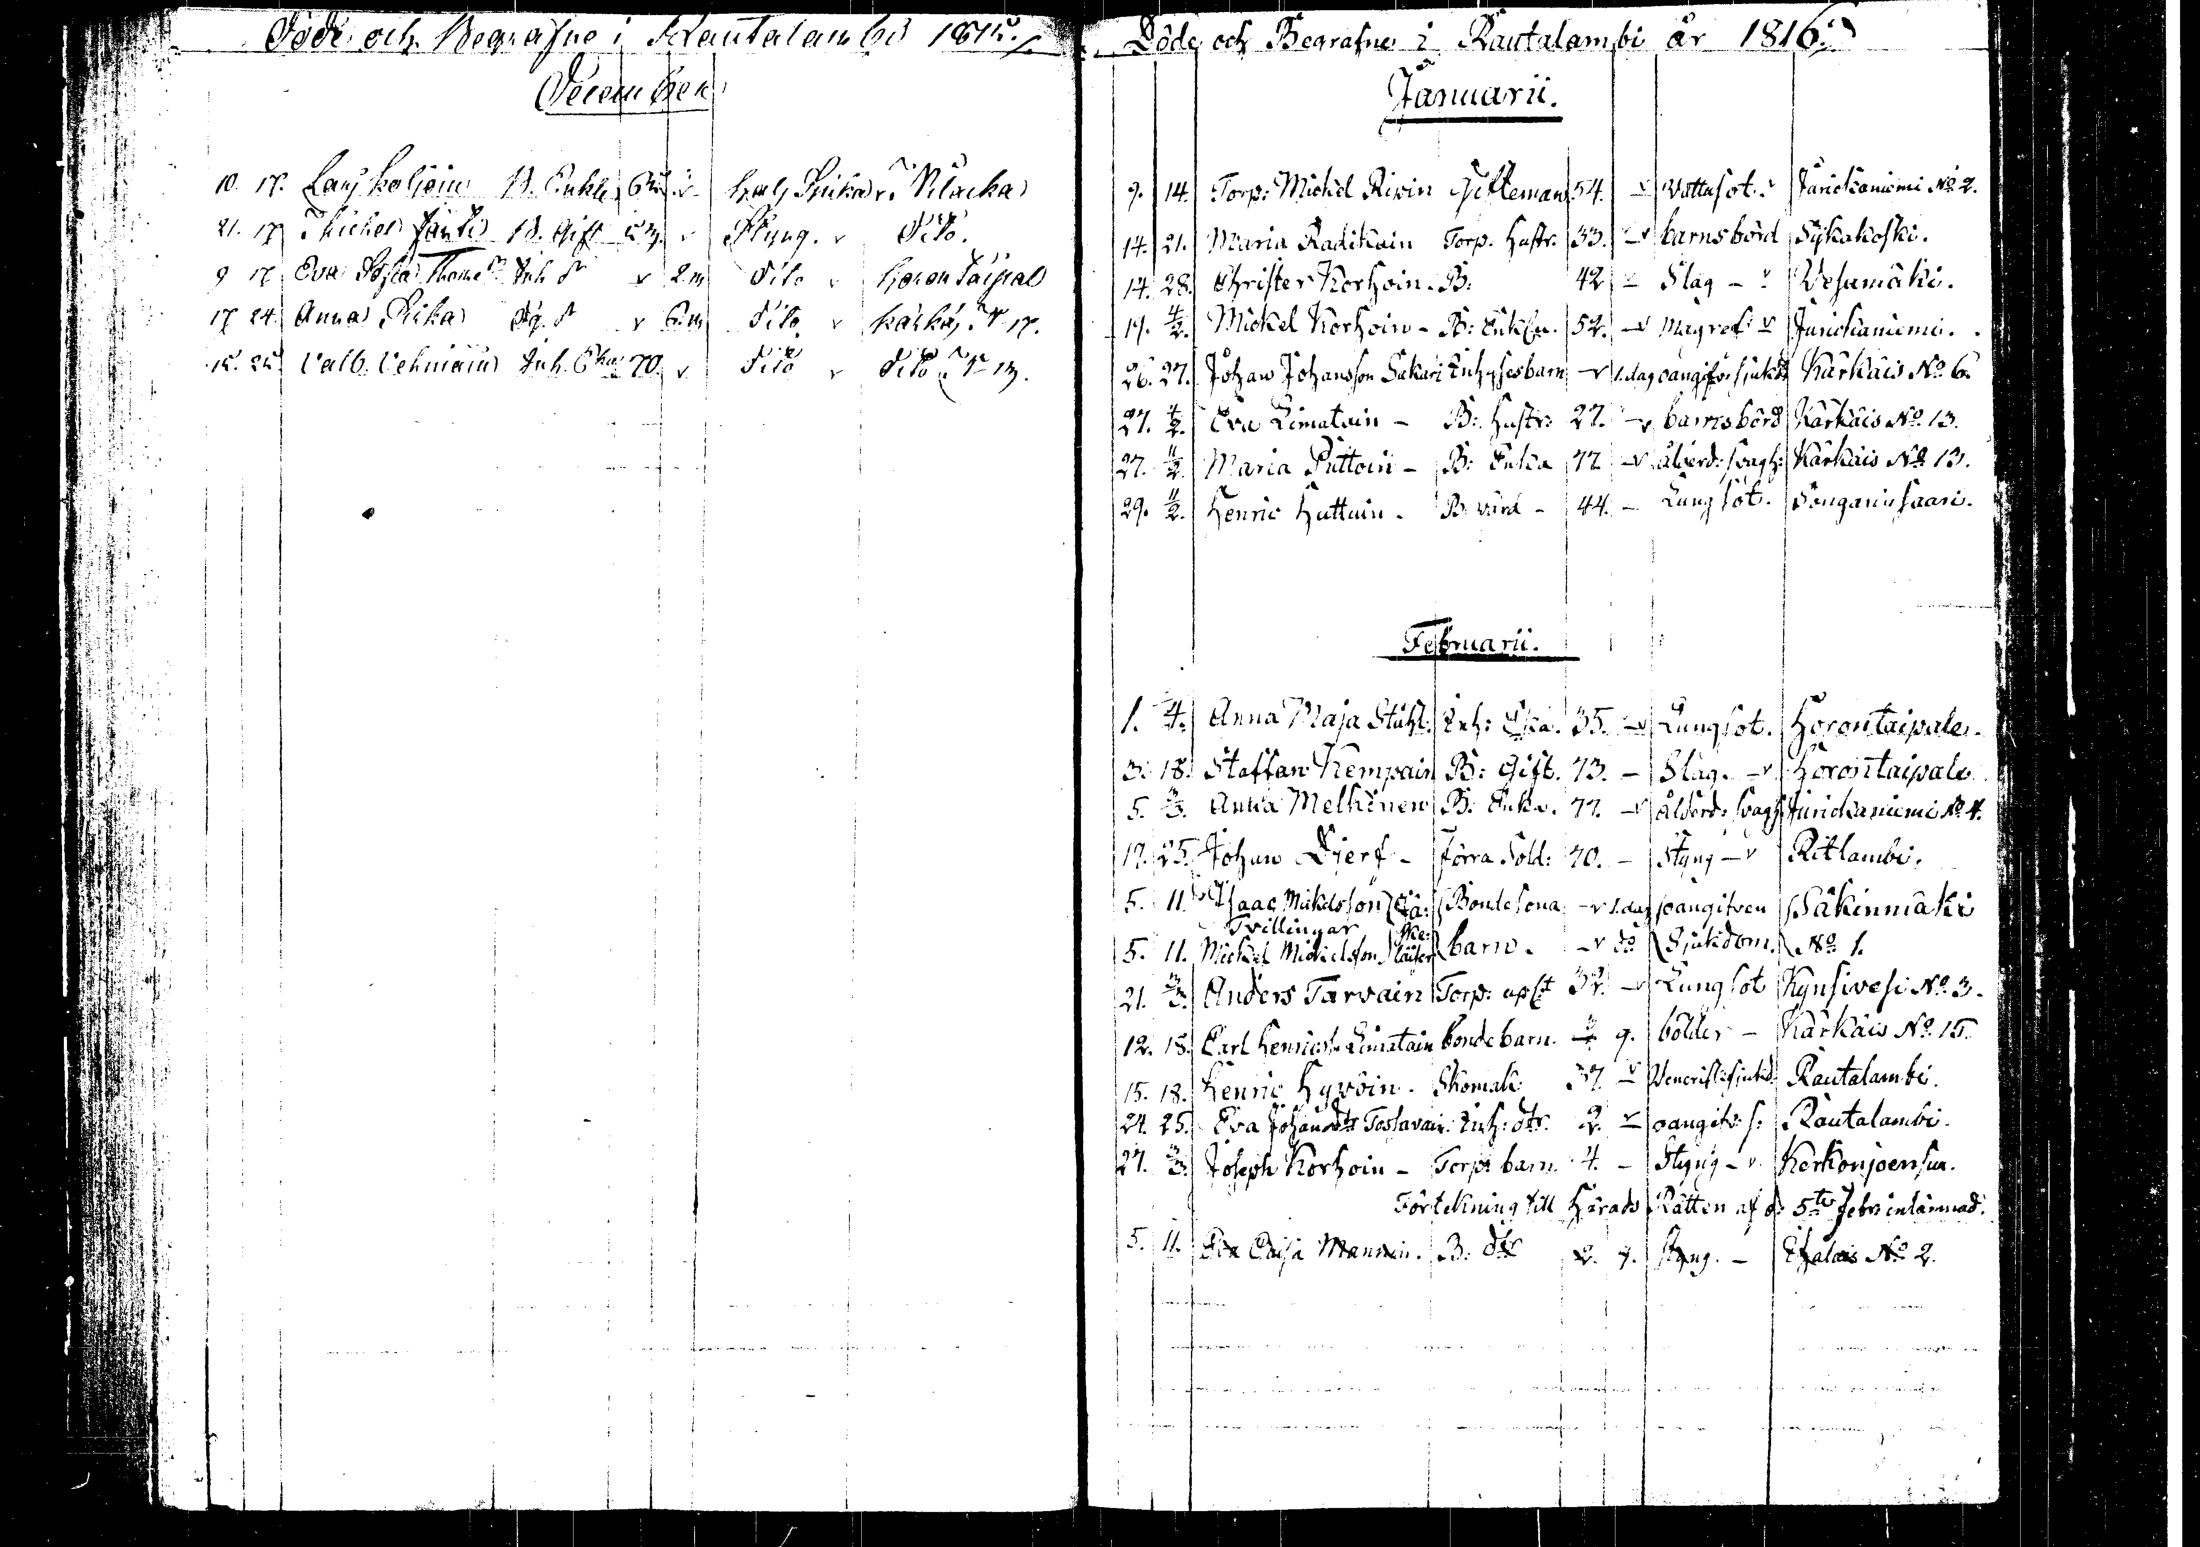 Döde och Begrafne i Rautalambi 1815.
December
10. 17. Lars Koljoin B. Enkl.
21. 17 Michel B. Gift v Styng. v Dito.
9 17 Eva Sofia Thoms Inh. dr v 2 m Dito v Horontaipal
17 24 Anna Rika v 6 m Dito v Kärkäs N 17.
15. 25 Valb. Vehniäin Inh. Eka 70 v Dito v Dito N 13.
Döde och Begrafne i Rautalambi år 1816.
Januarii.
9. 14. Torp: Mickel Rivin Gifteman 54. v Vattusot. v Jurickaniemi No 2.
14. 21. Maria Radikain Torp. Hustr. 33. v barnsbörd Sykäkoski.
14. 28. Christer Korhoin. B: 42 - Slag - v Vesamäki.
19. 4/2. Mickel Korhoin - B: Enkln. 52. v Magref v Jurickaniemi.
26. 27. Johan Johansson Sakari Inhyses barn v 1. dag oangifv. sjukd Kärkäis No 6.
27. 4/2. Eva Limatain - B: Hustr: 27. v barnsbörd Kärkäis No 13.
27. 11/2. Maria Puttoin - B: Enka 77 v ålderd: svagh: Kärkäis No 13.
29. 11/2. Henric Huttuin. B. värd - 44. - Lungsot. Songarinsaari.
Februarii.
1. 4. Anna Maja Ståhl. Inh: Eka. 35. v Lungsot. Horontaipale.
3. 18. Staffan Kempain B: Gift. 73. - Slag. - v Horontaipale
5. 3/3. Anna Melkinen B: Enka. 77. v ålderd: svagh. Jurickaniemi No 4.
17. 25. Johan Djerf - förra Sold: 70. - Styng - v Ritlambi.
5. 11. Isaac Mickelsson Bondesona v 1. dag oangifven Säkinmäki
Tvillingar
5. 11. Mickel Mickelsson barn. v do Sjukdom. No 1.
21. 3/3. Anders Tarvain Torp: 32. v Lungsot Kynsivesi No 3.
12. 18. Carl Henricss. Limatain bonde barn. 9. bölder - Kärkäis No 15.
15. 18. Henric Hyvöin. Skomak: 37. v Venerisk sjukd: Rautalambi.
24. 25. Eva Johansdtr Toslavain Inh: dtr. 2. v oangifv: s: Rautalambi.
27. 3/3. Joseph Korhoin - Torp: barn. 4. - Styng - v Kerkonjoensuu.
Förtekning till Härads Rätten af d: 5te Febr: inlämnad.
5. 11. Eva Caisa Mannin. B: dtr 2. 7. styng. - No 2.